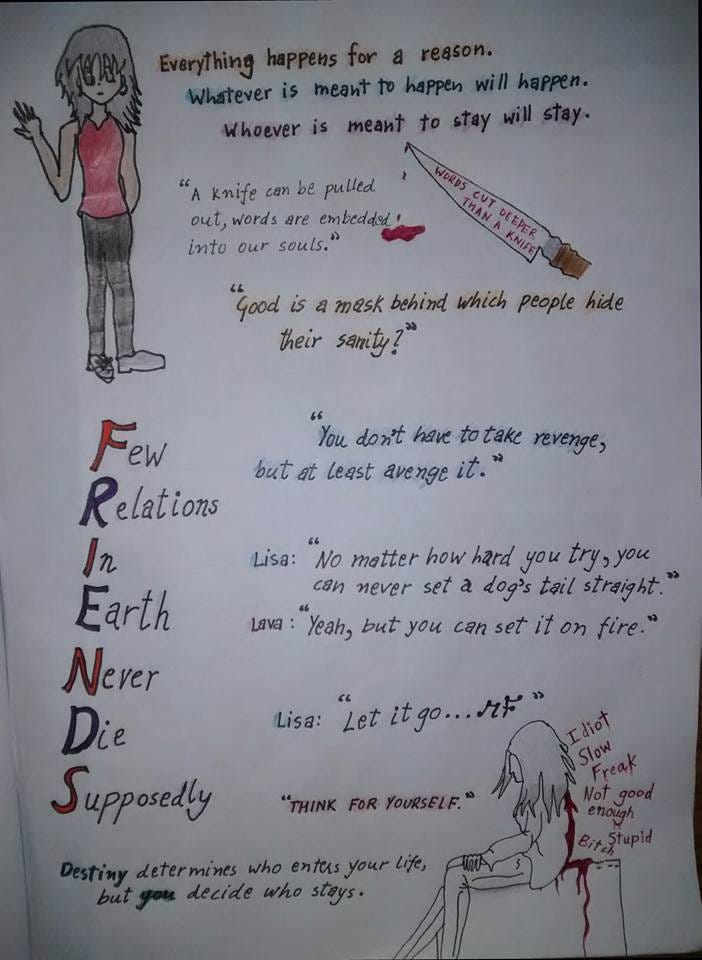 Everything happens for a reason.
Whatever is meant to happen will happen.
Whoever is meant to stay will stay.
"A knife can be pulled
out, words are embedded
into our souls."
WORDS CUT DEEPER
THAN A KNIFE
"Good is a mask behind which people hide
their sanity?"
Few
Relations
In
Earth
Never
Die
Supposedly
"You don't have to take revenge,
but at least avenge it."
Lisa: "No matter how hard you try, you
can never set a dog's tail straight."
Lava: "Yeah, but you can set it on fire."
Lisa: "Let it go... MF"
"THINK FOR YOURSELF."
Idiot
Slow
Freak
Not good
enough
Stupid
Bitch
Destiny determines who enters your life,
but you decide who stays.